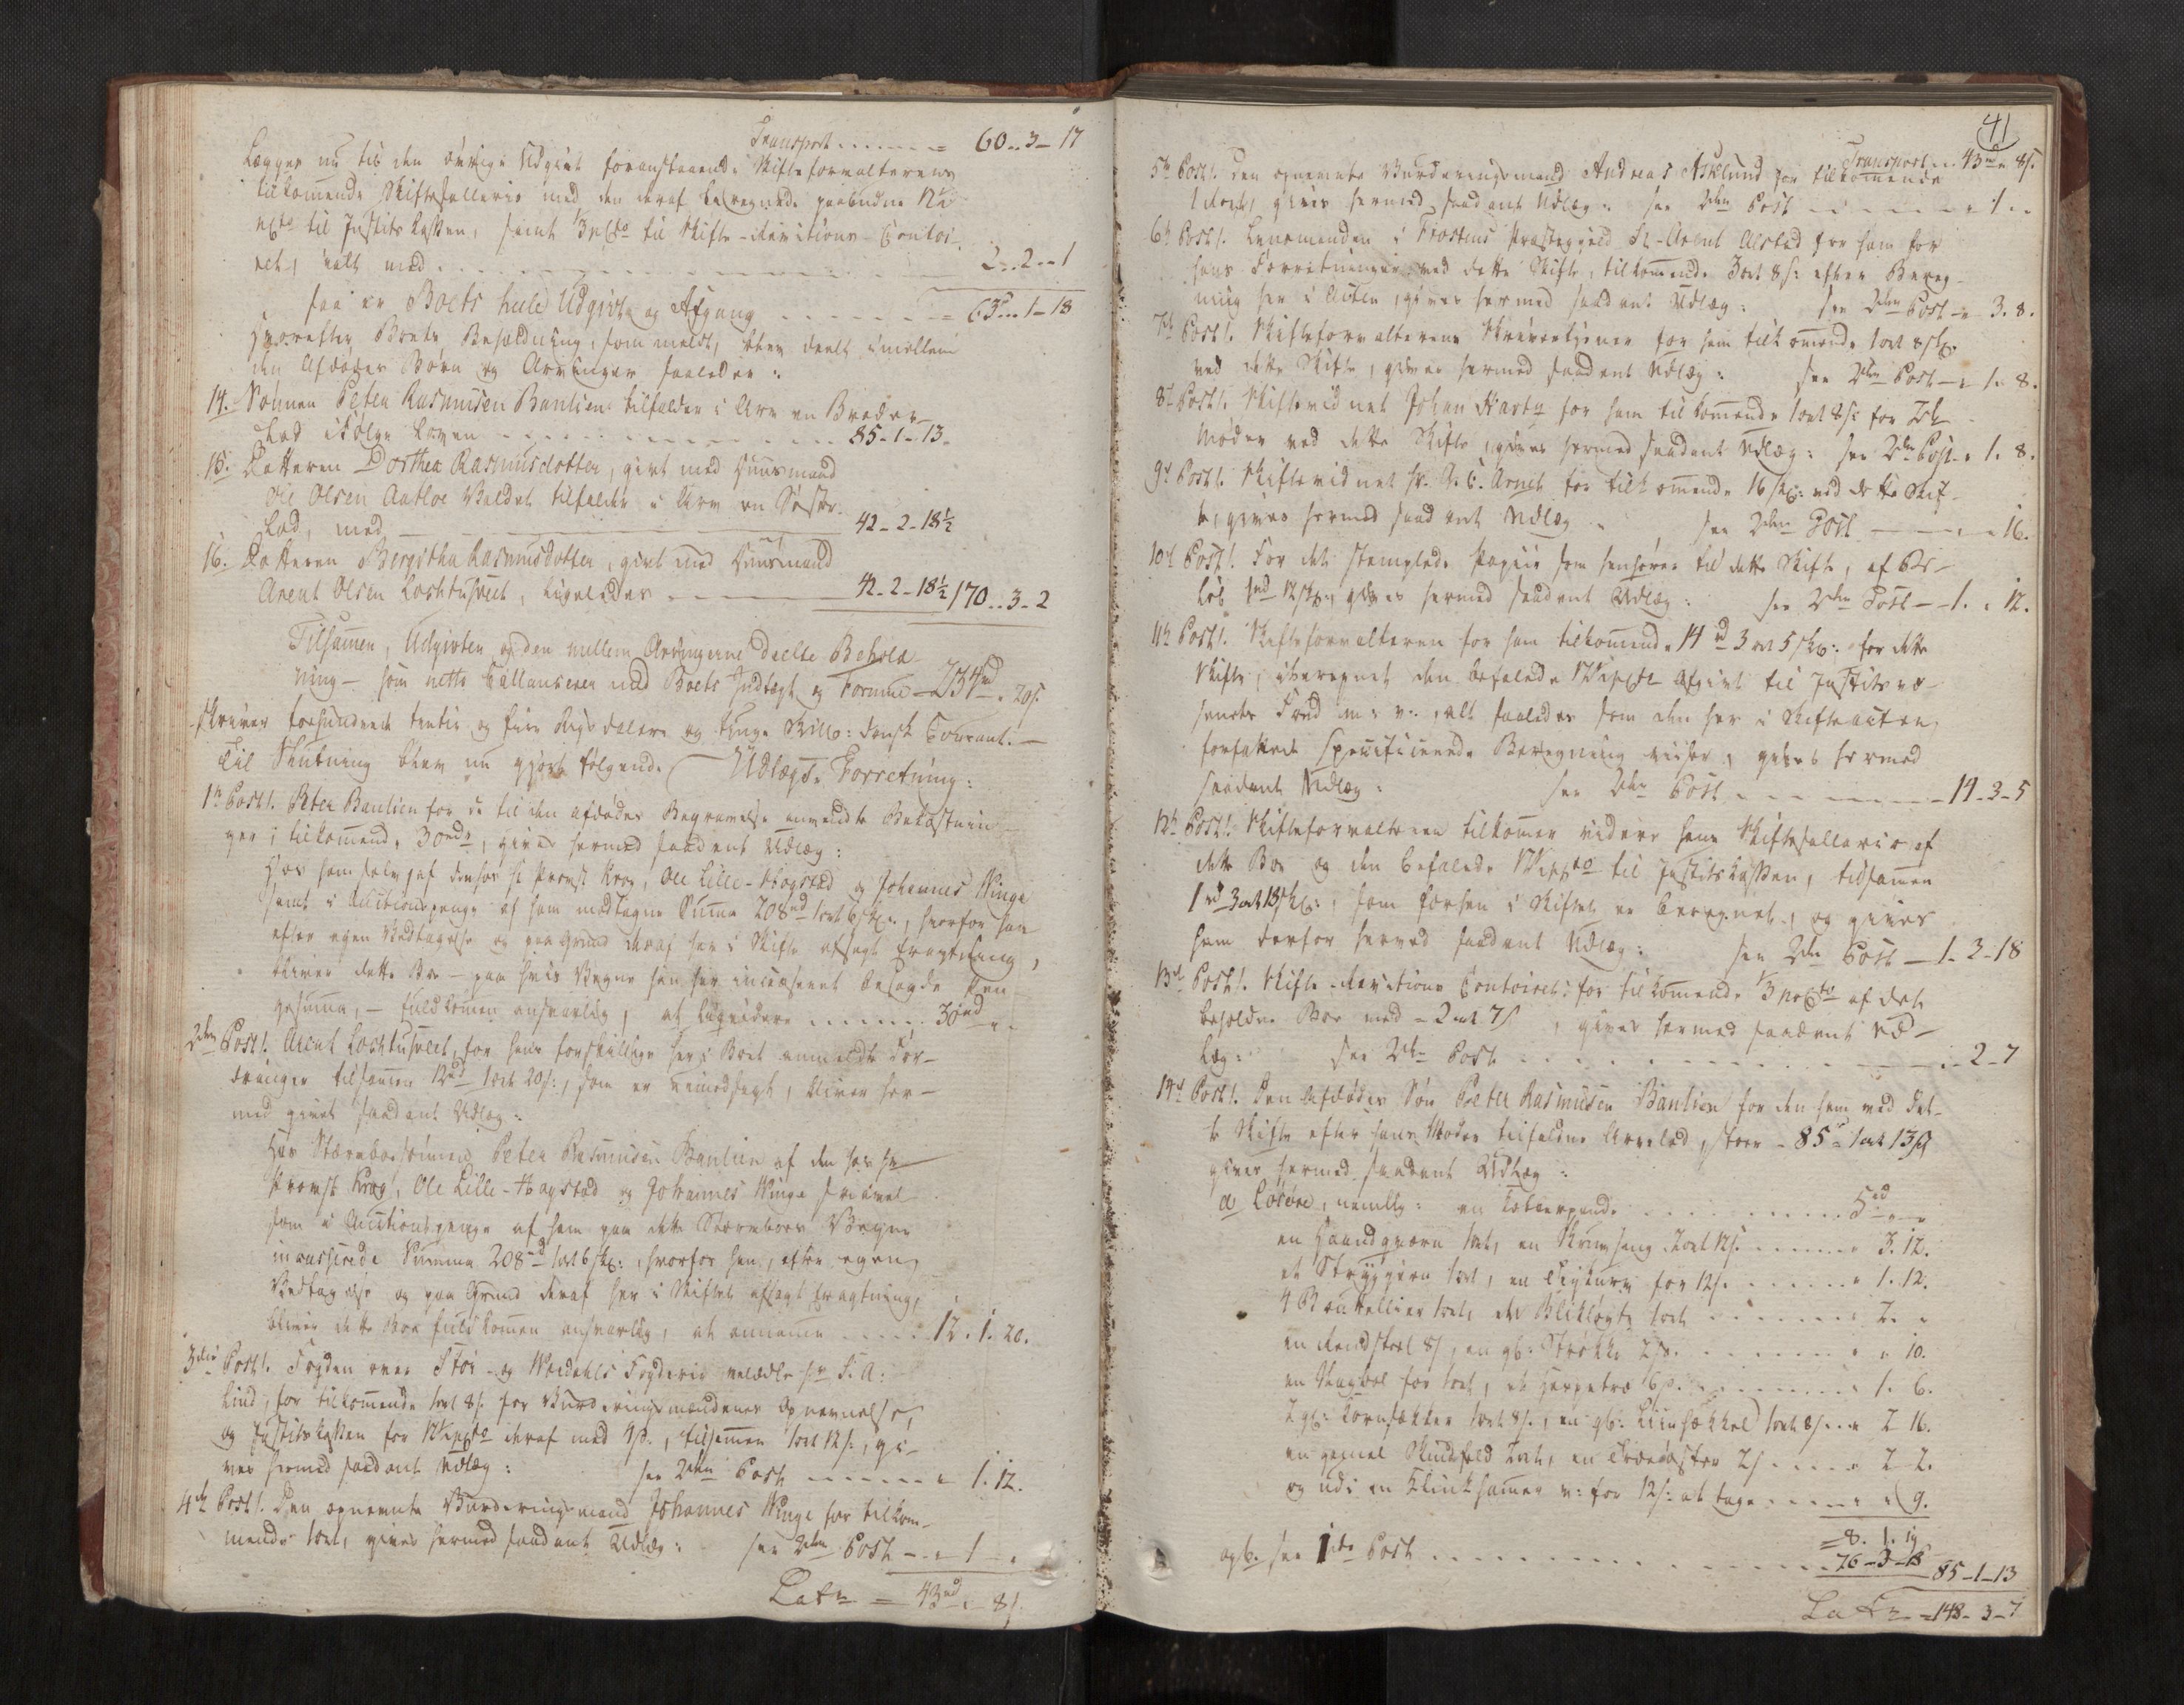 Transport . . . . . . = 60..3-17
Lægges nu til den øvrige Udgivt foranstaaende Skifteforvalterens
tilkommende Skiftesallerio med den deraf beregnede paabudne 12½
pCto til Justitskassen, samt ⅓ pCto til Skifte-Revisions-Contoi-
ret, ialt med . . . . . . 2..2..1
saa er Boets hele Udgivt og Afgang . . . . . . = 63...1-18
Hvorefter Boets Beholdning, som meldt, blev deelt imellem
den Afdødes Børn og Arvinger saaledes:
14. Sønnen Peter Rasmusen Banlien tilfalder i Arv en Broder-
Lod ifølge Loven . . . . . . 85-1-13.
15. Datteren Dorthea Rasmusdotter, givt med Huusmand
Ole Olsen Aatloe Valdet tilfalder i Arv en Søster-
Lod, med 42-2-18½
16. Datteren Bergitha Rasmusdotter, givt med Huusmand
Arent Olsen Lochtuhveet, ligeledes 42-2-18½ 170..3-2
Tilsamen, Udgivten og den mellem Arvingerne deelte Behold-
ning - som netto ballanserer med Boets Indtægt og Formue - 234rd " 20s.
skriver Tohundrede tretie og fiire Rigsdalere og tyve Skill: dansk Courant.
Til Slutning blev nu gjort følgende Udlægs-Forretning:
1ste Post. Peter Banlien for de til den afdødes Begravelse anvendte Bekostnin-
ger, tilkommende 30rd, gives hermed saadant Udlæg:
Hos ham selv, af den hos Hr Provst Krog, Ole Lille-Hogstad og Johannes Winge
samt i Auctionspenge af ham modtagne Summa 208rd 1ort 6sk:, hvorfor han
efter egen Vedtagelse og paa Grund deraf her i Skifte afsagt Eragtning,
bliver dette Boe - paa hvis Vegne han har incasseret besagde Pen-
gesumma, - fuldkommen ansvarlig, at liqvidere . . . . . . 30rd " -
2den Post. Arent Lochtuhveet, for hans forskiellige her i Boet anmeldte For-
dringer tilsammen 12rd 1ort 20s:, som er uimodsagt, bliver her-
med givet saadant Udlæg:
Hos Stervboesønnen Peter Rasmusen Banlien af den hos Hr
Provst Krog, Ole Lille-Hogstad og Johannes Winge saavel
som i Auctionspenge af ham paa dette Stervboes Vegne
incasserede Summa 208rd 1ort 6sk:, hvorfor han, efter egen
Vedtagelse og paa Grund deraf her i Skiftet afsagt Eragtning,
bliver dette Boe fuldkommen ansvarlig, at annamme . . . . 12. 1. 20.
3die Post. Fogden over Stør- og Værdahls Fogderie velædle Hr S. A:
Lind, for tilkommende 1ort 8s. for Vurderingsmændenes Opnevnelse,
og Justitskassen for 12½ pCto deraf med 4s., tilsammen 1ort 12s., gi-
ves hermed saadant Udlæg: see 2den Post . . . . . . " 1. 12.
4de Post. Den opnevnte Vurderingsmand Johannes Winge for tilkom-
mende 1ort, gives hermed saadant Udlæg: see 2den Post - - " 1 - "
Latr = 43rd " 8s.
41
Transport . . 43rd " 8s.
5te Post. Den opnevnte Vurderingsmand Andreas Asklund for tilkommende
1 ort, gives hermed saadant Udlæg: see 2den Post - - - - - " 1 - "
6te Post. Lensmanden i Frostens Præstegjeld Sr. Arent Alstad for ham for
hans Forretninger ved dette Skifte, tilkommende 3ort 8s: efter Bereg-
ning her i Acten, gives hermed saadant Udlæg: see 2den Post - " 3. 8.
7de Post. Skifteforvalterens Skriverkjener for ham tilkommende 1ort 8sk.
ved dette Skifte, gives hermed saadant Udlæg: see 2den Post - " 1. 8.
8de Post. Skiftevidnet Johan Hartz for ham tilkommende 1ort 8s: for 2de
Møder ved dette Skifte, gives hermed saadant Udlæg: see 2den Post - " 1. 8.
9de Post. Skiftevidnet Sr. A. C. Arnet for tilkommende 16sk: ved dette Skif-
te, gives hermed saadant Udlæg: see 2den Post - - " " 16.
10de Post. For det stemplede Papiir som henhører til dette Skifte, af Be-
løb 1rd 12sk:, gives hermed saadant Udlæg: see 2den Post - - 1. " 12.
11te Post. Skifteforvalteren for ham tilkommende 14rd 3ort 5sk: for dette
Skifte, iberegnet den befalede 12½ pCto Afgivt til Justitsvæ-
senets Fond m: v:, alt saaledes som den her i Skifteacten
forfattede specificeerede Beregning viiser, gives hermed
saadant Udlæg: see 2den Post - - - - - - 14-3-5
12te Post. Skifteforvalteren tilkommer videre hans Skiftesallario af
dette Boe og den befalede 12½ pCto til Justitskassen, tilsammen
1rd 3ort 18sk:, som forhen i Skiftet er beregnet, og gives
ham derfor herved saadant Udlæg: see 2den Post - 1-3-18
13de Post. Skifte-Revisions Contoiret for tilkommende ⅓ pCto af det
beholdne Boe med - 2ort 7s, gives hermed saadant Ud-
læg: see 2den Post . . . . . . " - 2-7
14de Post. Den Afdødes Søn Peter Rasmusen Banlien for den ham ved det-
te Skifte efter hans Moder tilfaldne Arvelod, stoer - 85rd 1ort 13s
gives hermed saadant Udlæg:
a Løsøre, nemlig: en . . . . . . 5rd " "
en Haandqværn 1ort, en Skruvhang 2ort 12s. . . . . . " 3. 12.
et Strygejern 1ort, en for 12s. . . . . . " 1. 12.
4 Bouteillier 1ort, en Bliklygte 1ort . . . . . . " 2. "
en 8s, en gl: 2s. . . . . . " " 10.
en for 1ort, et 6s. . . . . . " 1. 6.
2 gl: Kornsækker 1ort 8s., en gl: 1ort 8s. . . " 2 16.
en gammel Skindfeld 2ort, en 2s . . . . " 2 2.
og udi en v: for 12s: at tage . . . . " " 9.
= 8. 1. 19
ogs. see 1ste Post . . . . . . 76-3-18 85-1-13
Latr = 148-3-7